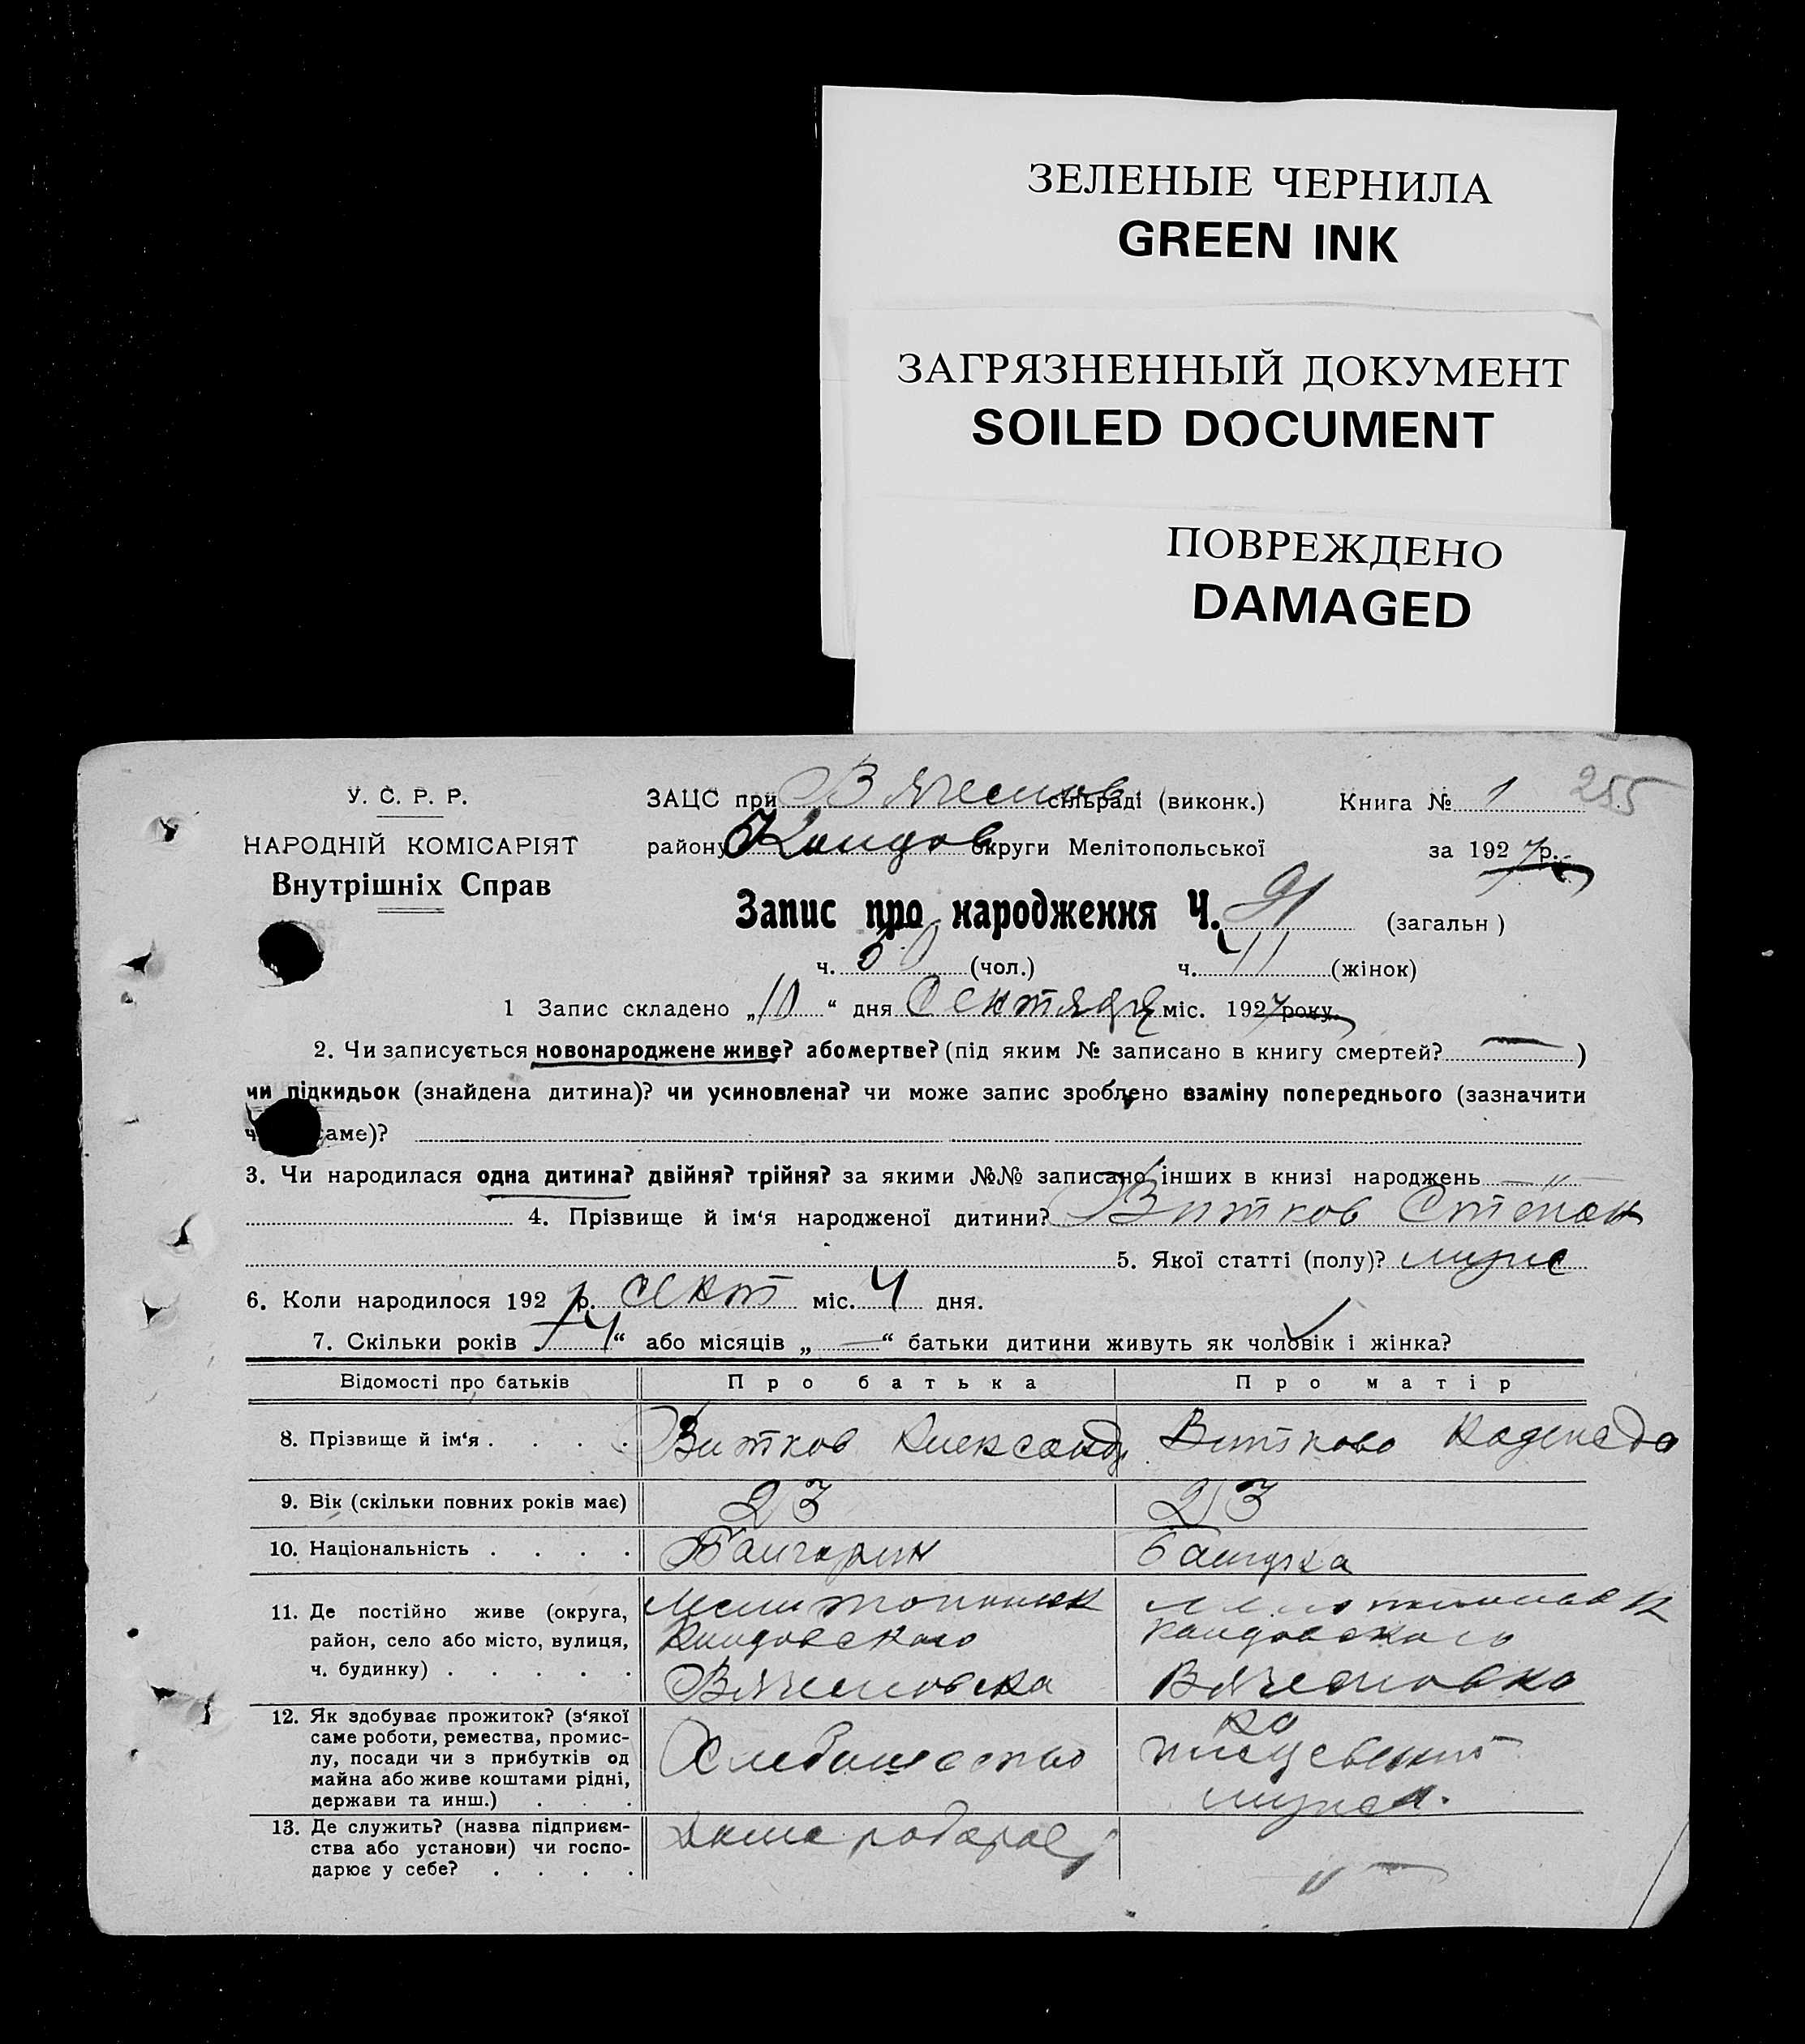 ЗЕЛЕНЫЕ ЧЕРНИЛА
GREEN INK
ЗАГРЯЗНЕННЫЙ ДОКУМЕНТ
SOILED DOCUMENT
ПОВРЕЖДЕНО
DAMAGED
255
У. С. Р. Р.
ЗАЦС при сільраді (виконк.) Книга № 1
НАРОДНІЙ КОМІСАРІЯТ
району округи Мелітопольської за 1927 р.
Внутрішніх Справ
Запис про народження Ч. 91 (загальн )
ч. 50 (чол.) ч. 41 (жінок)
1 Запис складено „10“ дня Сентября міс. 1927 року.
2. Чи записується новонароджене живе? або мертве? (під яким № записано в книгу смертей? — )
чи підкидьок (знайдена дитина)? чи усиновлена? чи може запис зроблено взаміну попереднього (зазначити
саме)?
3. Чи народилася одна дитина? двійня? трійня? за якими №№ записано інших в книзі народжень — „ —
4. Прізвище й ім‘я народженої дитини? Витков Степан
5. Якої статті (полу)? муж
6. Коли народилося 1927 р. сент міс. 4 дня.
7. Скільки років „4“ або місяців „ — “ батьки дитини живуть як чоловік і жінка?
Відомості про батьків Про батька Про матір
8. Прізвище й ім‘я . . . . Витков Александр Виткова Надежда
9. Вік (скільки повних років має) 23 23
10. Національність . . . . Болгарин Болгарка
11. Де постійно живе (округа,
район, село або місто, вулиця,
ч. будинку) . . . . .
Вячесловка Вячесловка
12. Як здобуває прожиток? (з‘якої
саме роботи, ремества, промис-
лу, посади чи з прибутків од
майна або живе коштами рідні,
держави та инш.) . . .
Хлебопашество
на иждевении
мужа.
13. Де служить? (назва підприєм-
ства або установи) чи госпо-
дарює у себе? . . . .
„ —